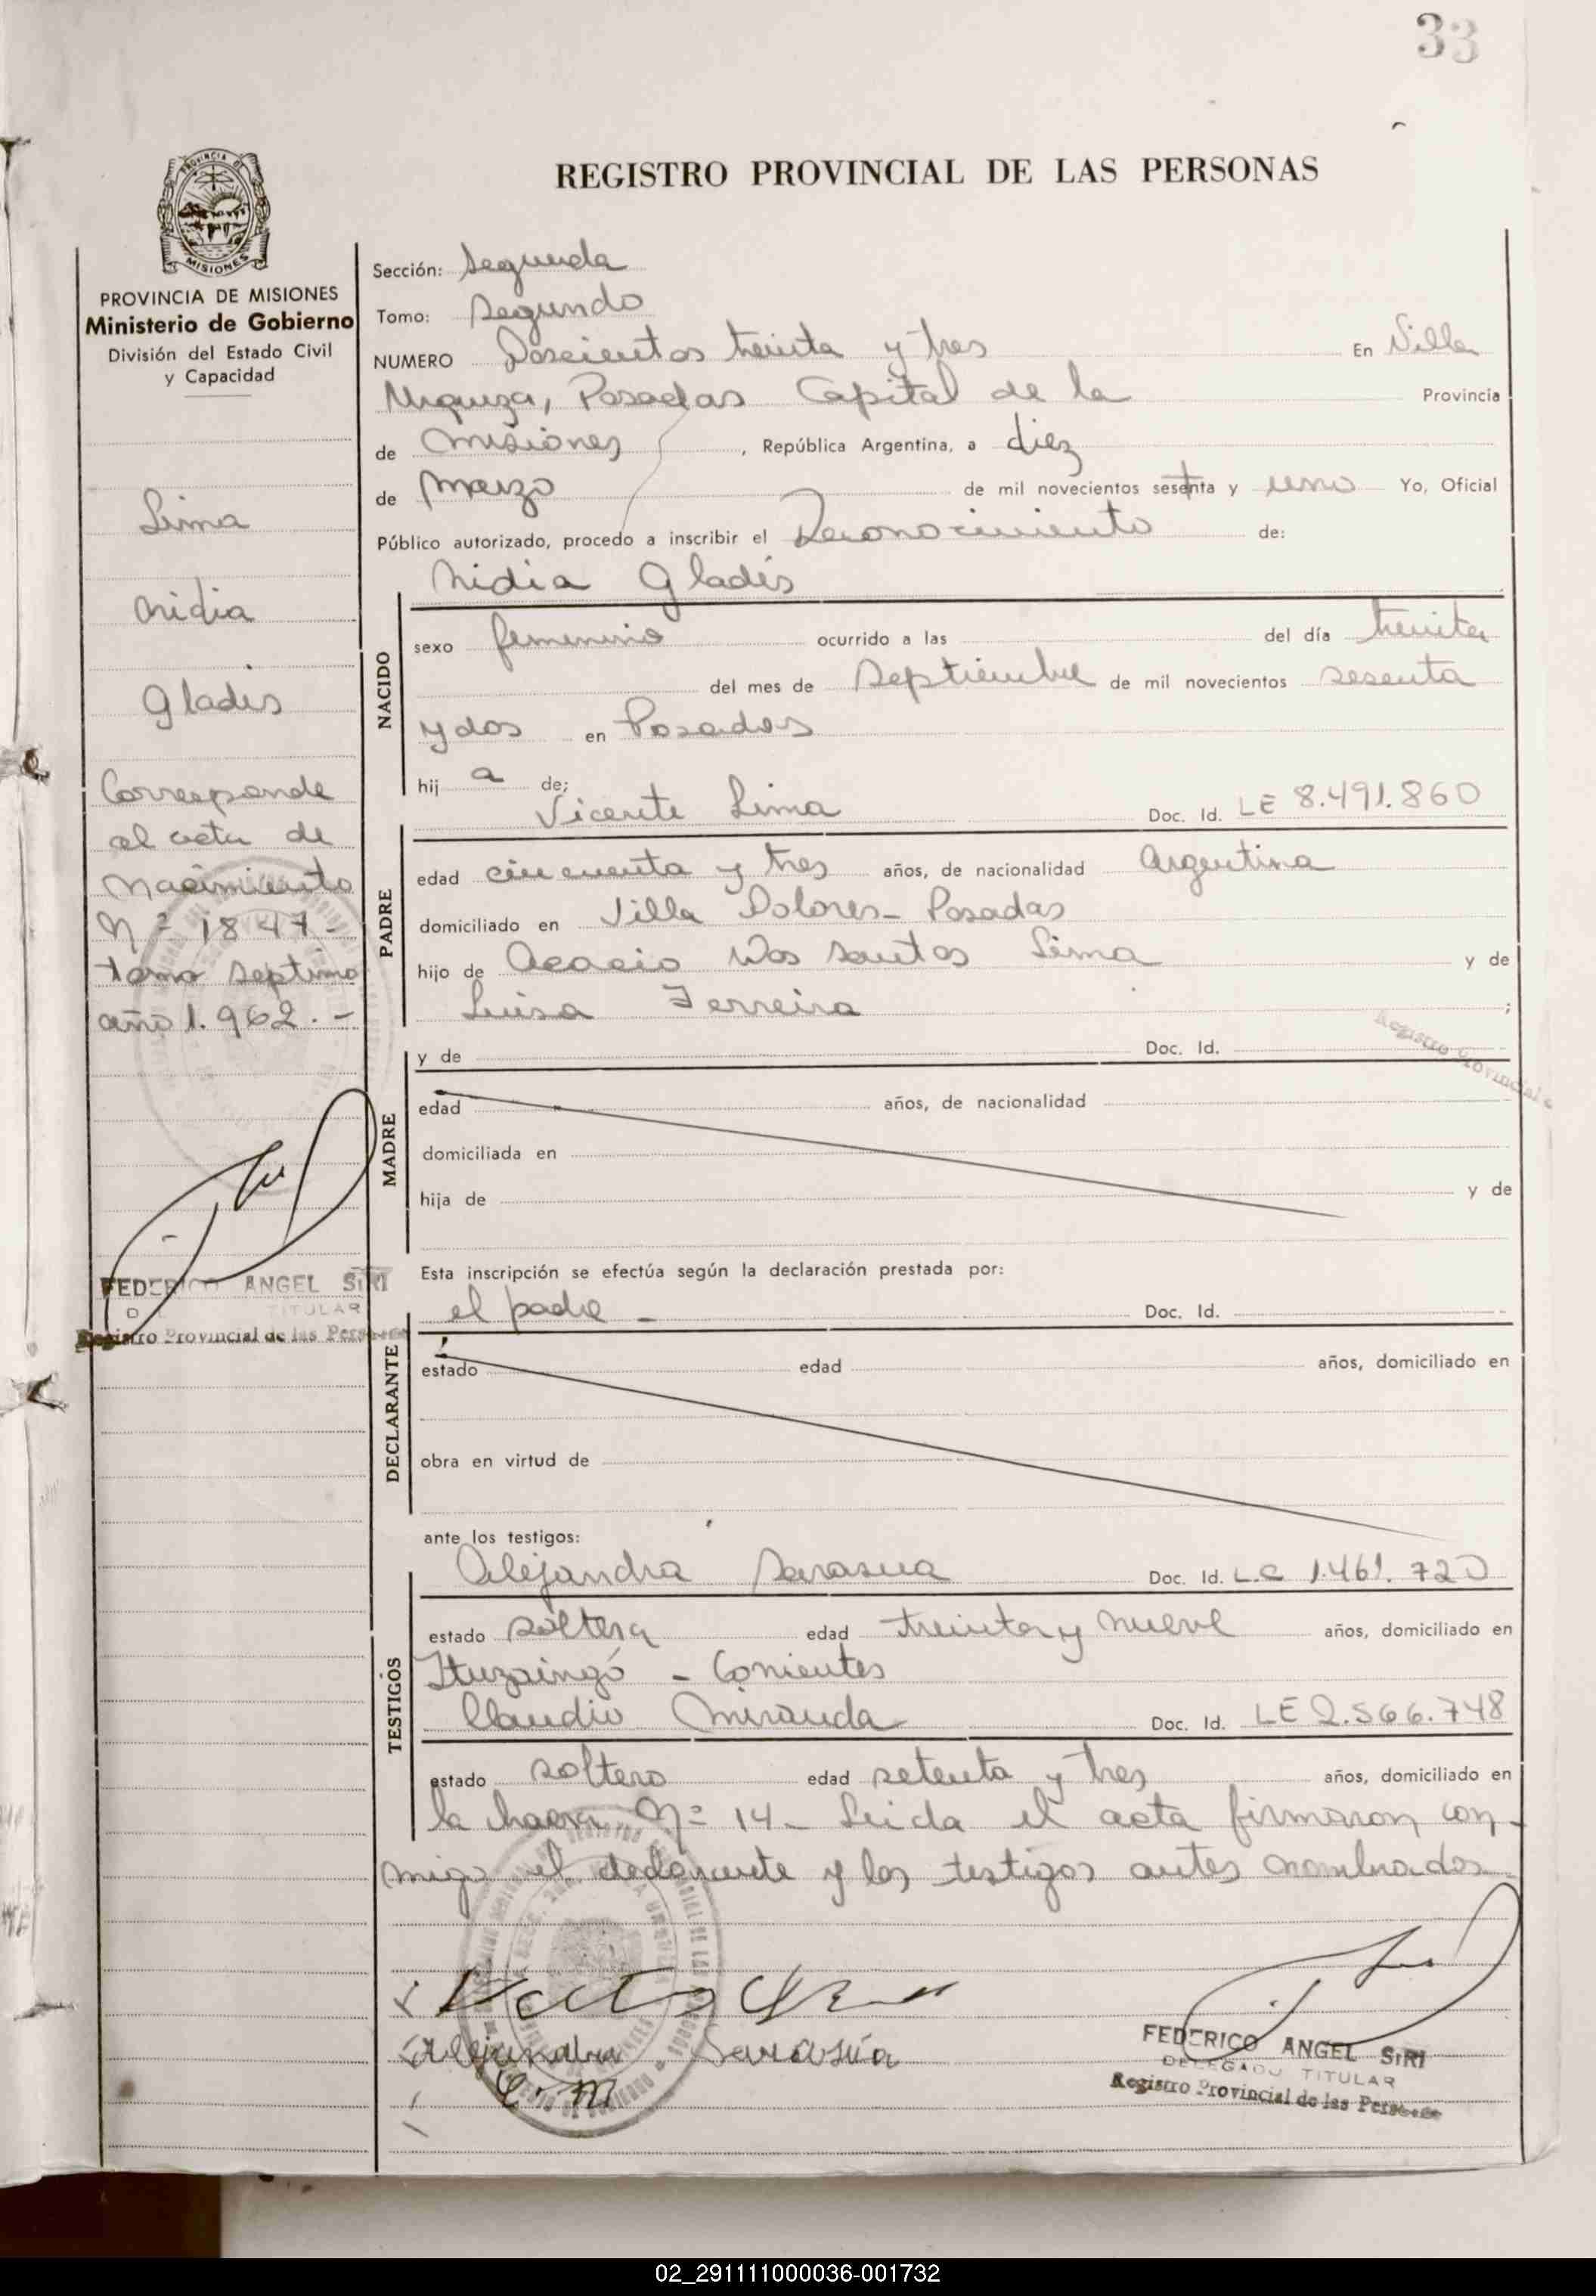 33
REGISTRO PROVINCIAL DE LAS PERSONAS
PROVINCIA DE MISIONES
MISIONES
PROVINCIA DE MISIONES
Ministerio de Gobierno
División del Estado Civil
y Capacidad
Lima
Nidia
Gladis
Corresponde
al acta de
Nacimiento
Nº 1847-
tomo septimo
año 1.962.-
FEDERICO ANGEL SIRI
TITULAR
Registro Provincial de las Personas
Sección: Segunda
Tomo: Segundo
NUMERO Doscientos treinta y tres En Villa
Urquiza, Posadas Capital de la Provincia
de Misiones, República Argentina, a diez
de Marzo de mil novecientos setenta y uno Yo, Oficial
Público autorizado, procedo a inscribir el Reconocimiento de:
Nidia Gladis
NACIDO
sexo femenino ocurrido a las del día treinta
del mes de Septiembre de mil novecientos sesenta
y dos en Posadas
hij a de;
Vicente Lima Doc. Id. LE 8.491.860
PADRE
edad cincuenta y tres años, de nacionalidad Argentina
domiciliado en Villa Dolores - Posadas
hijo de Acacio Dos Santos Lima y de
Luisa Ferreira ;
Registro Provincial
MADRE
y de Doc. Id.
edad años, de nacionalidad
domiciliada en
hija de y de
Esta inscripción se efectúa según la declaración prestada por:
el padre - Doc. Id.
DECLARANTE
estado edad años, domiciliado en
obra en virtud de
ante los testigos:
Alejandra Sarasua Doc. Id. L.C 1.461.720
TESTIGOS
estado soltera edad treinta y nueve años, domiciliado en
Ituzaingó - Corrientes
Claudio Miranda Doc. Id. LE 2.566.748
estado soltero edad setenta y tres años, domiciliado en
la chacra Nº 14 - Leida el acta firmaron con-
migo el declarante y los testigos antes nombrados
Alejandra Sarasúa
C. M
FEDERICO ANGEL SIRI
DELEGADO TITULAR
Registro Provincial de las Personas
02_291111000036-001732